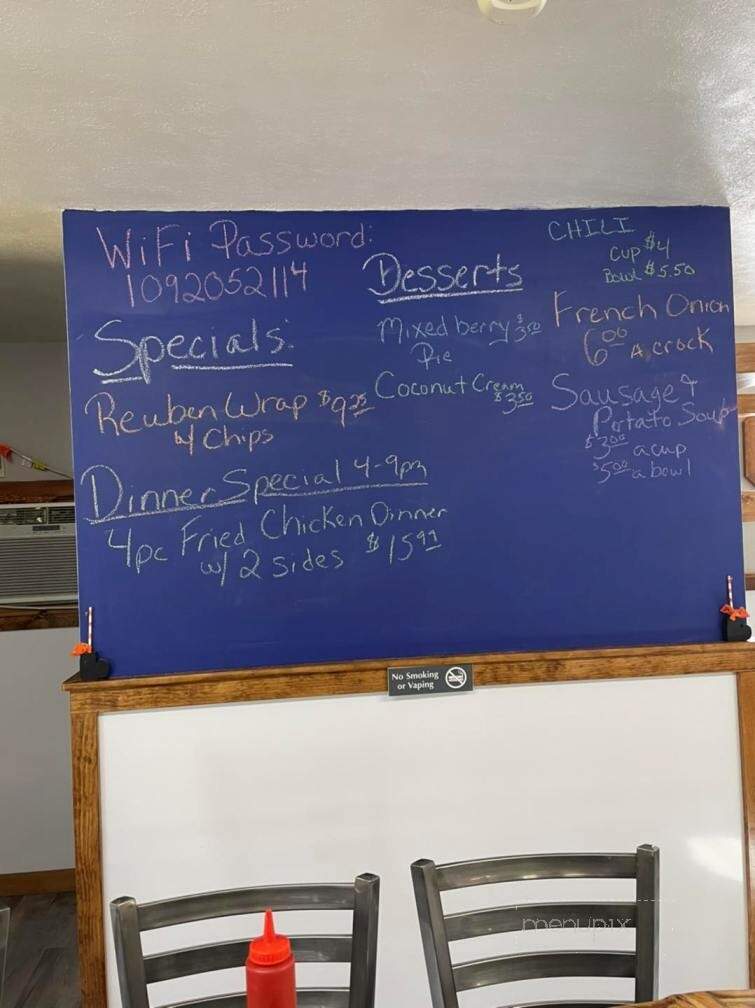 WiFi Password:
1092052114
Specials:
Reuben Wrap $9.25
w/ Chips
Dinner Special 4-9pm
4pc Fried Chicken Dinner
w/ 2 sides $15.99
Desserts
Mixed berry $3.50
Pie
Coconut Cream
$3.50
CHILI
Cup $4
Bowl $5.50
French Onion
6.00 A crock
Sausage &
Potato Soup
$3.00 a cup
$5.00 a bowl
No Smoking
or Vaping
menupix